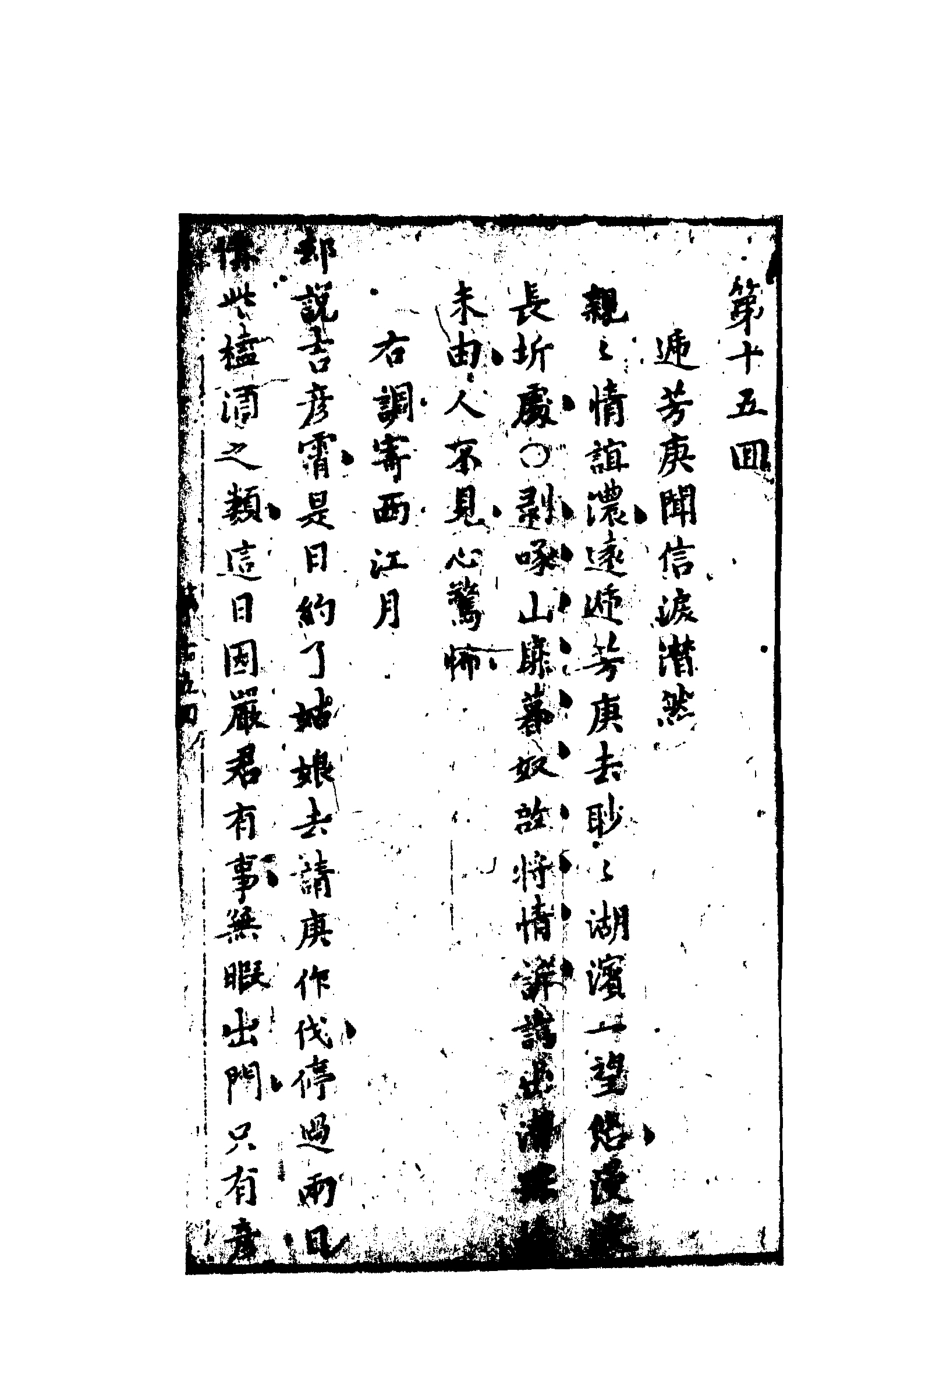 第十五回
遞芳庚聞信淚潸然
親〻情誼濃遠遞芳庚去眇〻湖濱一望悠漫
長圻處〇剝啄山扉暮奴詮將情訴講出潸
未由人不見心驚怖
右調寄西江月
却說吉彥霄是日約了姑娘去請庚作伐停過兩日
備些榼酒之類這日因嚴君有事無暇出門只有彥
第十五回